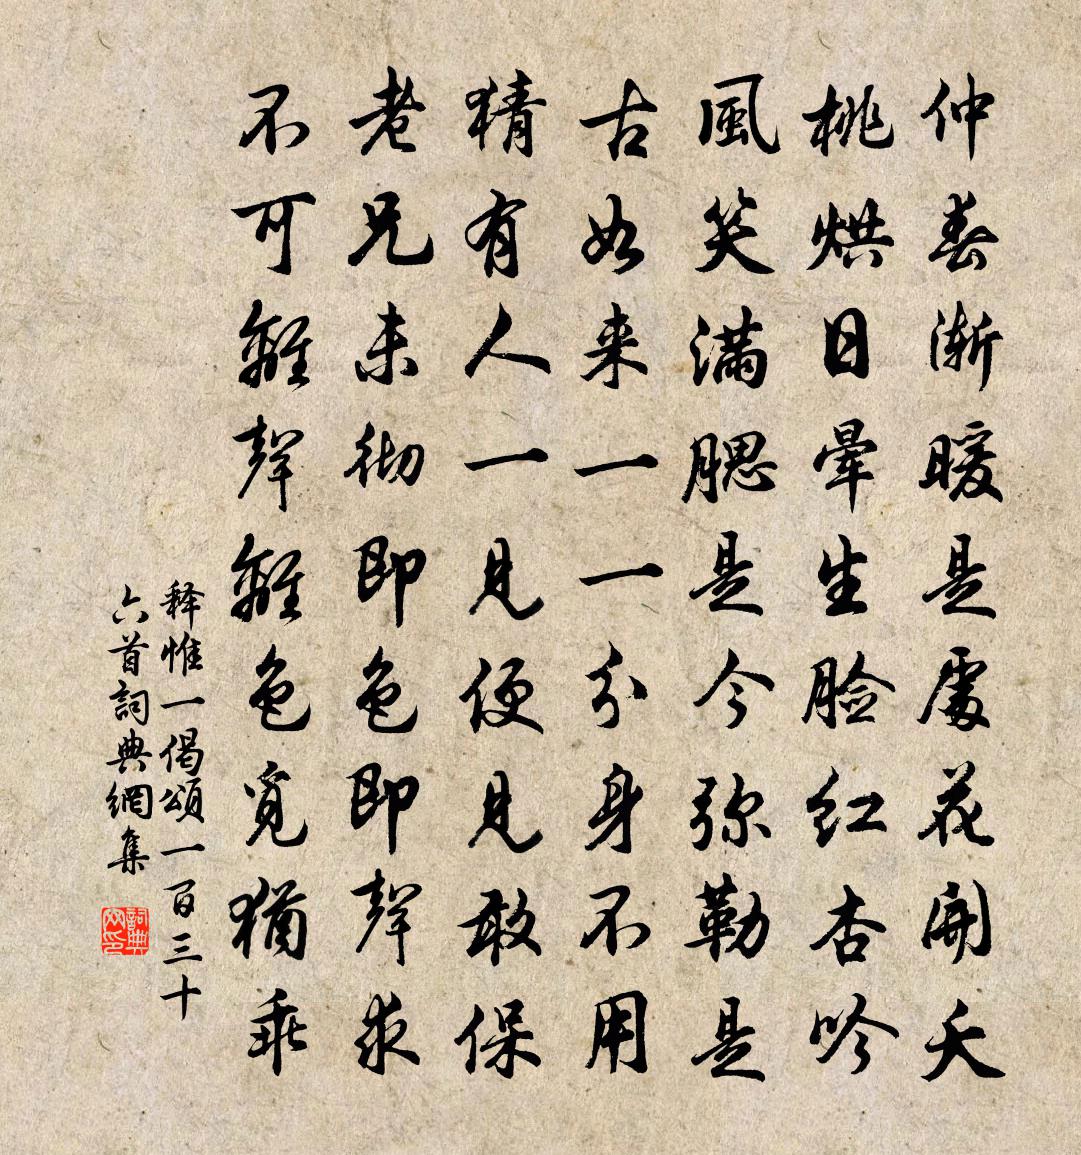 仲春渐暖是處花開夭
桃烘日暈生臉红杏吟
風笑滿腮是今弥勒是
古如来一一分身不用
猜有人一見便見敢保
老兄未彻即色即聲求
不可離聲離色覓猶乖
释惟一偈頌一百三十
六首詞典網集
詞典网印